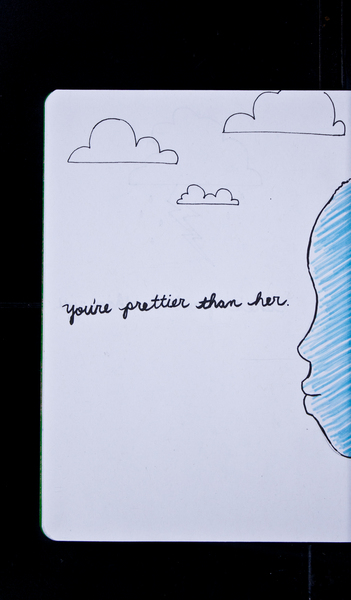 you're prettier than her.